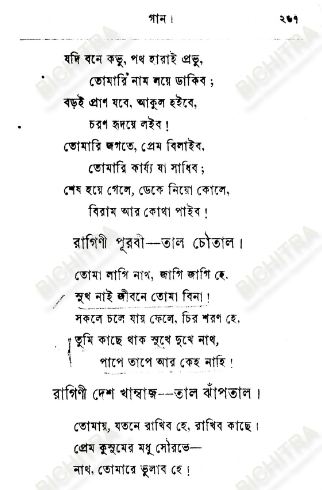 গান।
২৬৭
যদি বনে কভু, পথ হারাই প্রভু,
তোমারি নাম লয়ে ডাকিব;
বড়ই প্রাণ যবে, আকুল হইবে,
চরণ হৃদয়ে লইব!
তোমারি জগতে, প্রেম বিলাইব,
তোমারি কার্য্য যা সাধিব;
শেষ হয়ে গেলে, ডেকে নিয়ো কোলে,
বিরাম আর কোথা পাইব!
রাগিণী পূরবী—তাল চৌতাল।
তোমা লাগি নাথ, জাগি জাগি হে,
সুখ নাই জীবনে তোমা বিনা!
সকলে চলে যায় ফেলে, চির শরণ হে,
তুমি কাছে থাক সুখে দুখে নাথ,
পাপে তাপে আর কেহ নাহি!
রাগিণী দেশ খাম্বাজ--তাল ঝাঁপতাল।
তোমায়, যতনে রাখিব হে, রাখিব কাছে।
প্রেম কুসুমের মধু সৌরভে—
নাথ, তোমারে ভুলাব হে!
BICHITRA